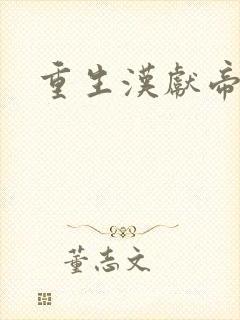 重生漢獻帝
董志文